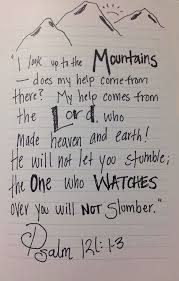 "I look up to the Mountains
— does my help come from
there? My help comes from
the Lord, who
made heaven and earth!
He will not let you stumble;
the One who WATCHES
over you will NOT Slumber."
Psalm 121:1-3